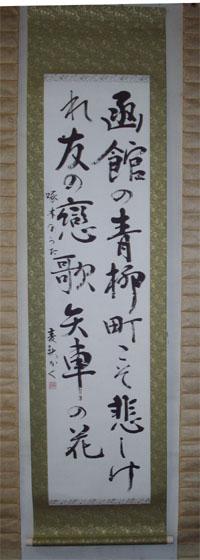 函館の青柳町こそ悲しけ
れ友の戀歌矢車の花
啄木のうた
かく